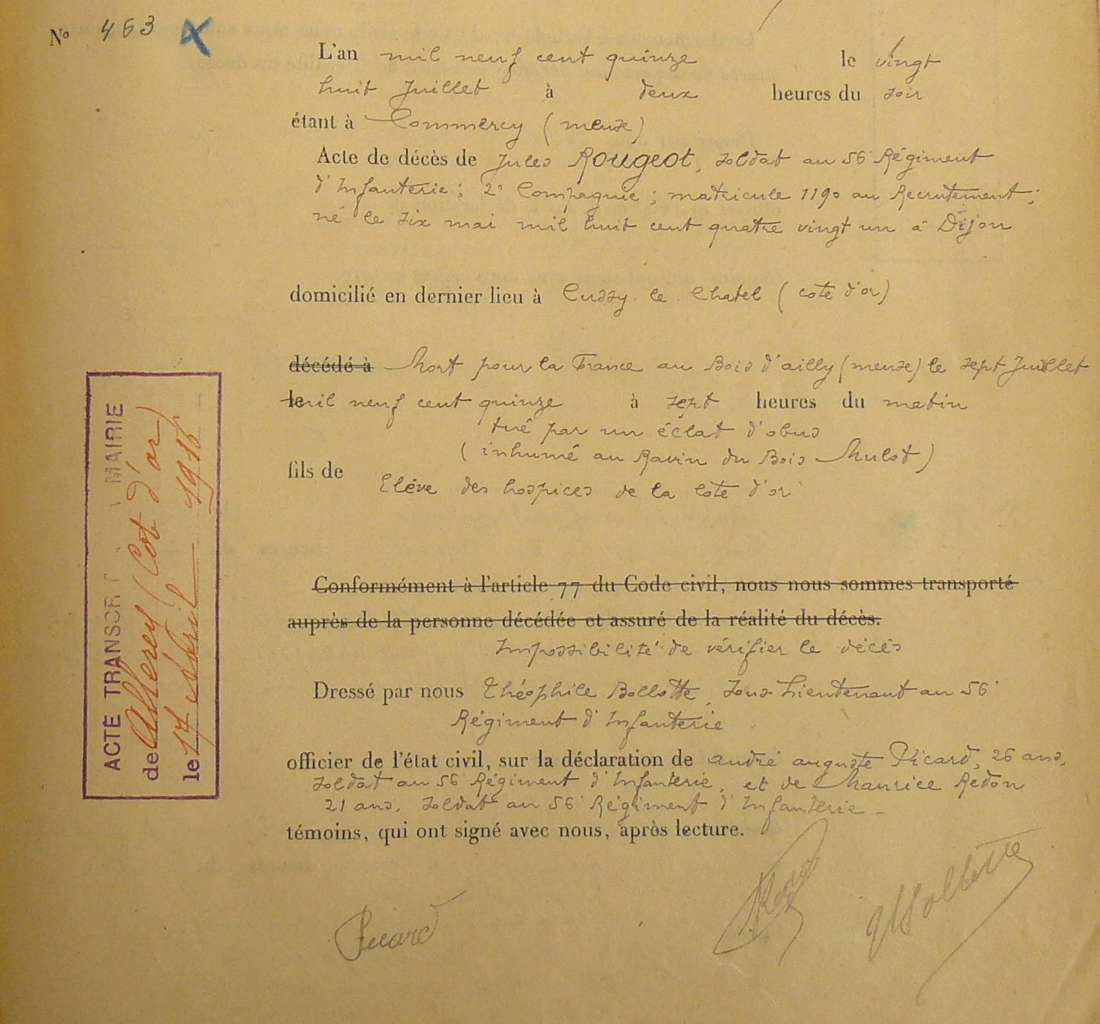 N° 463 X
L'an mil neuf cent quinze le vingt
huit Juillet à deux heures du soir
étant à Commercy (meuse)
Acte de décès de Jules ROUGEOT, soldat au 56e Régiment
d'Infanterie ; 2e Compagnie ; matricule 1190 au Recrutement ;
né le six mai mil huit cent quatre vingt un à Dijon
domicilié en dernier lieu à Cussy-le-Chatel (cote d'or)
décédé à Mort pour la France au Bois d'ailly (meuse) le sept Juillet
le mil neuf cent quinze à sept heures du matin
tué par un éclat d'obus
(inhumé au Ravin du Bois Mulot)
fils de
Elève des hospices de la cote d'or
Conformément à l'article 77 du Code civil, nous nous sommes transporté
auprès de la personne décédée et assuré de la réalité du décès.
Impossibilité de vérifier le décès
Dressé par nous Théophile Bollotte, Sous-Lieutenant au 56e
Régiment d'Infanterie
officier de l'état civil, sur la déclaration de andré auguste Picard, 26 ans,
soldat au 56e Régiment d'Infanterie, et de Maurice Redon
21 ans, soldat au 56e Régiment d'Infanterie -
témoins, qui ont signé avec nous, après lecture.
Picard
Bollotte
ACTE TRANSCR MAIRIE
de Allerey (Cot d'or)
le 17 abril 1916